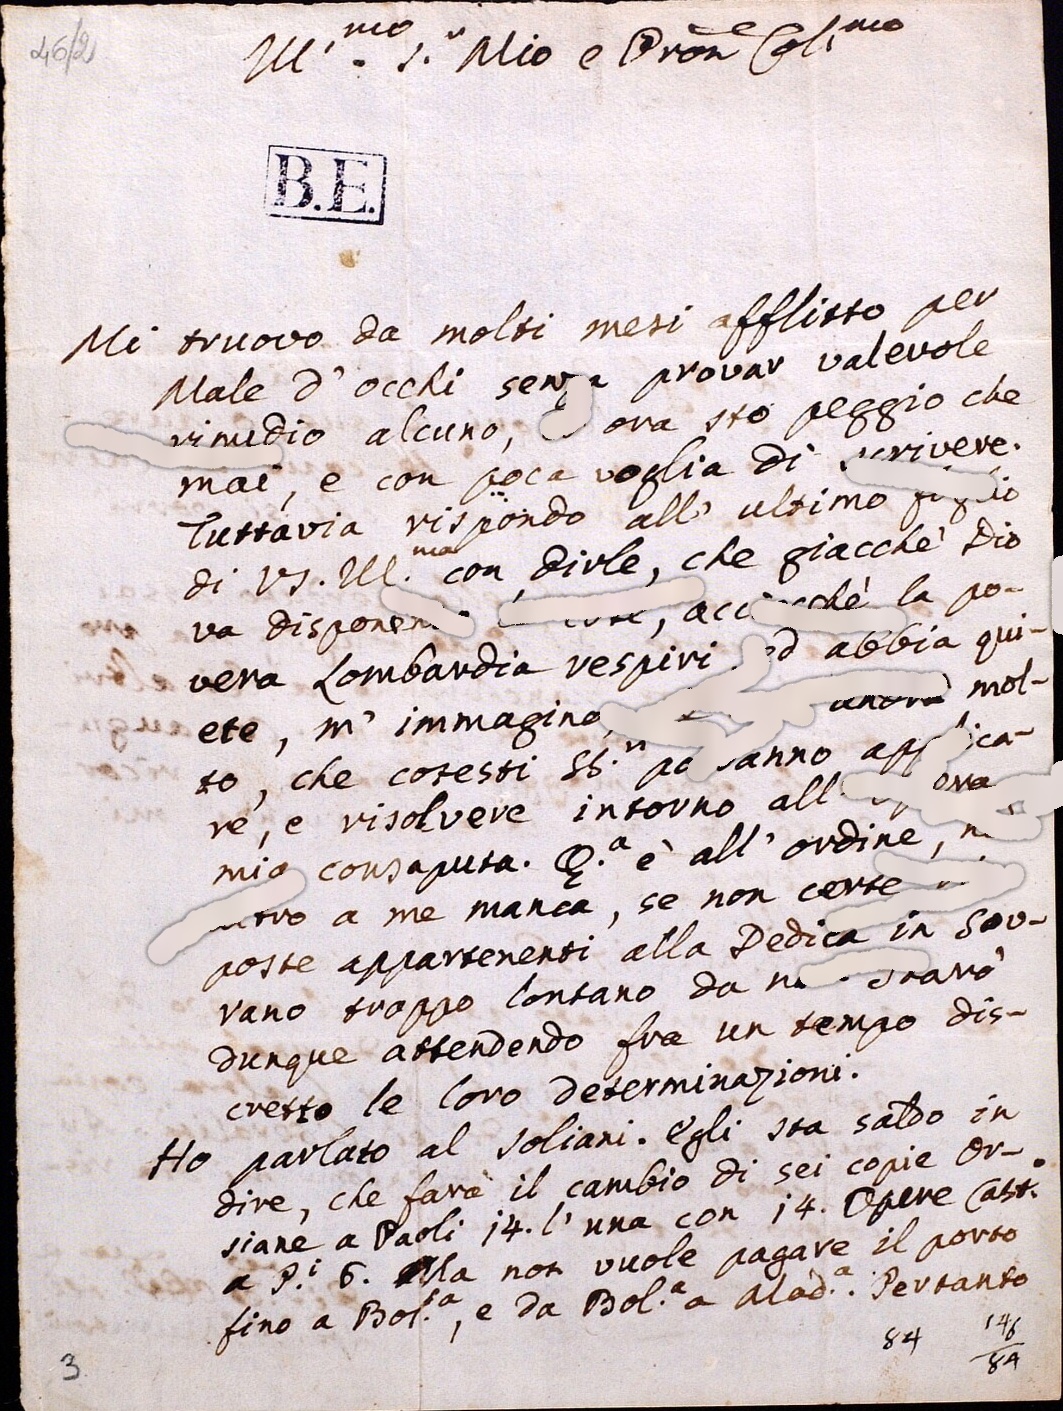 46/2
Ill.mo S.r Mio e Pron e Col.mo
B.E.
Mi truovo da molti mesi afflitto per
Male d'occhi senza provar valevole
rimedio alcuno, ora sto peggio che
mai, e con poca voglia di scrivere.
Tuttavia rispondo all' ultimo foglio
di VS. Ill.ma con dirle, che giacchè Dio
va disponendo cose, acciocchè la po-
vera Lombardia respiri ed abbia qui-
ete, m' immagino, ancora mol-
to, che cotesti SS.ri potranno applica-
re, e risolvere intorno all' opera
mia consaputa. Q.a è all' ordine, nè
altro a me manca, se non certe
poste appartenenti alla Dedica in Sov-
rano troppo lontano da noi. Starò
dunque attendendo fra un tempo dis-
cretto le loro determinazioni.
Ho parlato al Soliani. Egli sta saldo in
dire, che farà il cambio di sei copie Or-
siane a Paoli 14. l' una con 14. Opere Cast.
a P.i 6. Ma non vuole pagare il porto
fino a Bol.a, e da Bol.a a Mod.a. Pertanto
84
146
84
3